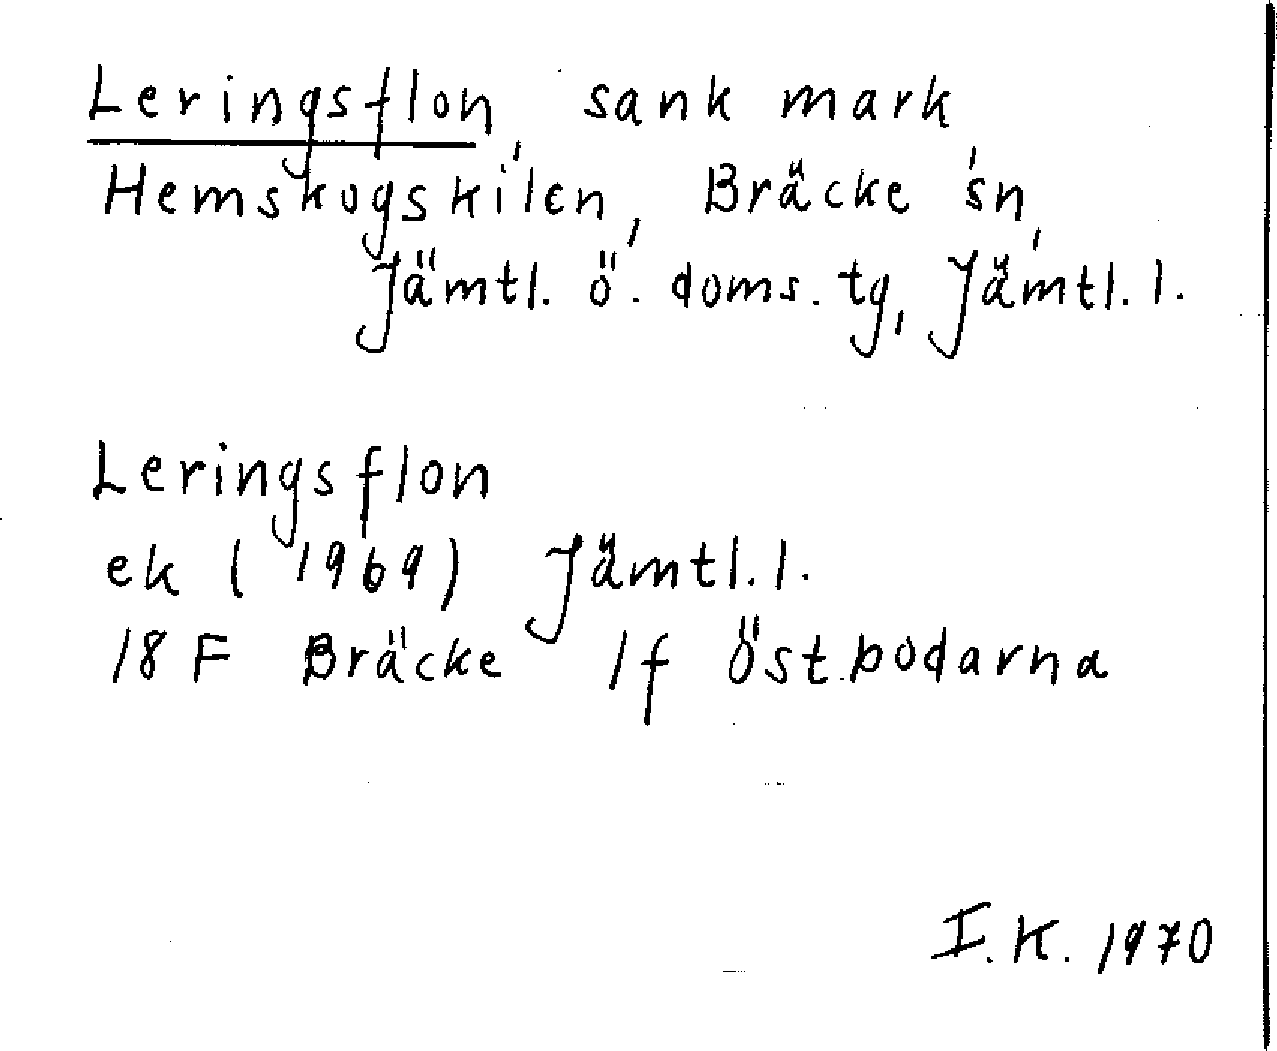 Leringsflon, sank mark,
Hemskogskilen, Bräcke sn,
Jämtl. ö. doms. tg, Jämtl. l.
Leringsflon
ek (1969) Jämtl. l.
18 F Bräcke 1f Östbodarna
I. K. 1970